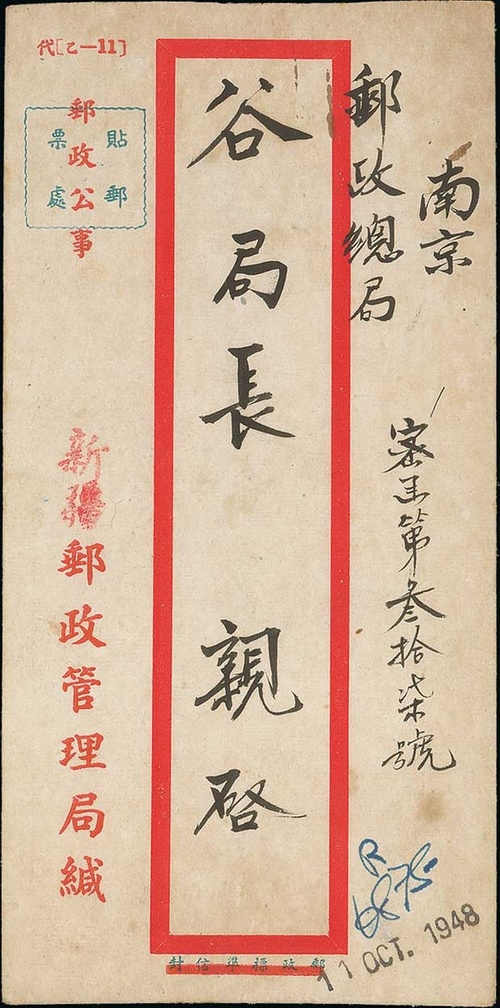 南京
郵政總局
密呈第叁拾柒號
谷局長 親启
代[乙—11]
貼郵
票處
郵政公事
新疆郵政管理局緘
郵政標準信封
R
11 OCT. 1948